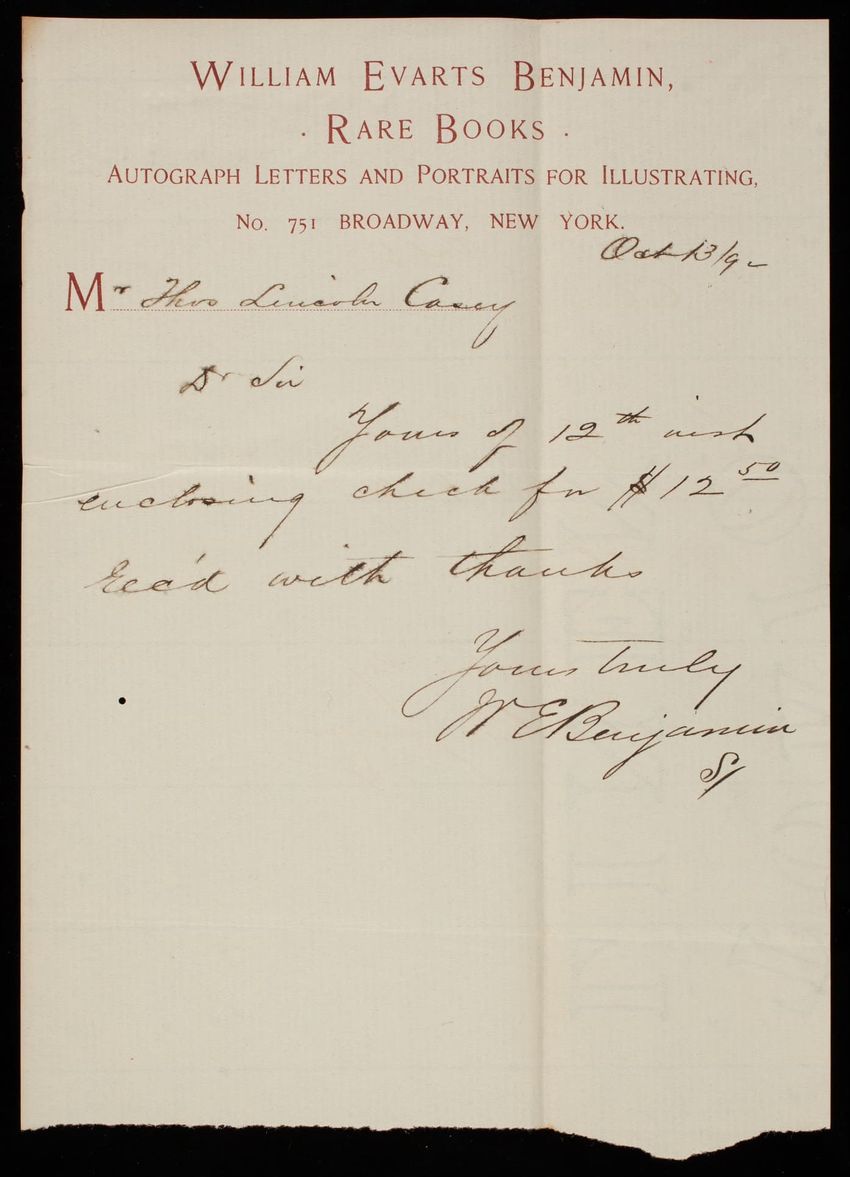 William Evarts Benjamin,
· Rare Books ·
Autograph Letters and Portraits for Illustrating,
No. 751 Broadway, New York.
Oct 13/9
Mr Thos Lincoln Casey
Dr Sir
Yours of 12th inst
enclosing check for $12 50
Rec'd with thanks
Yours truly
W E Benjamin